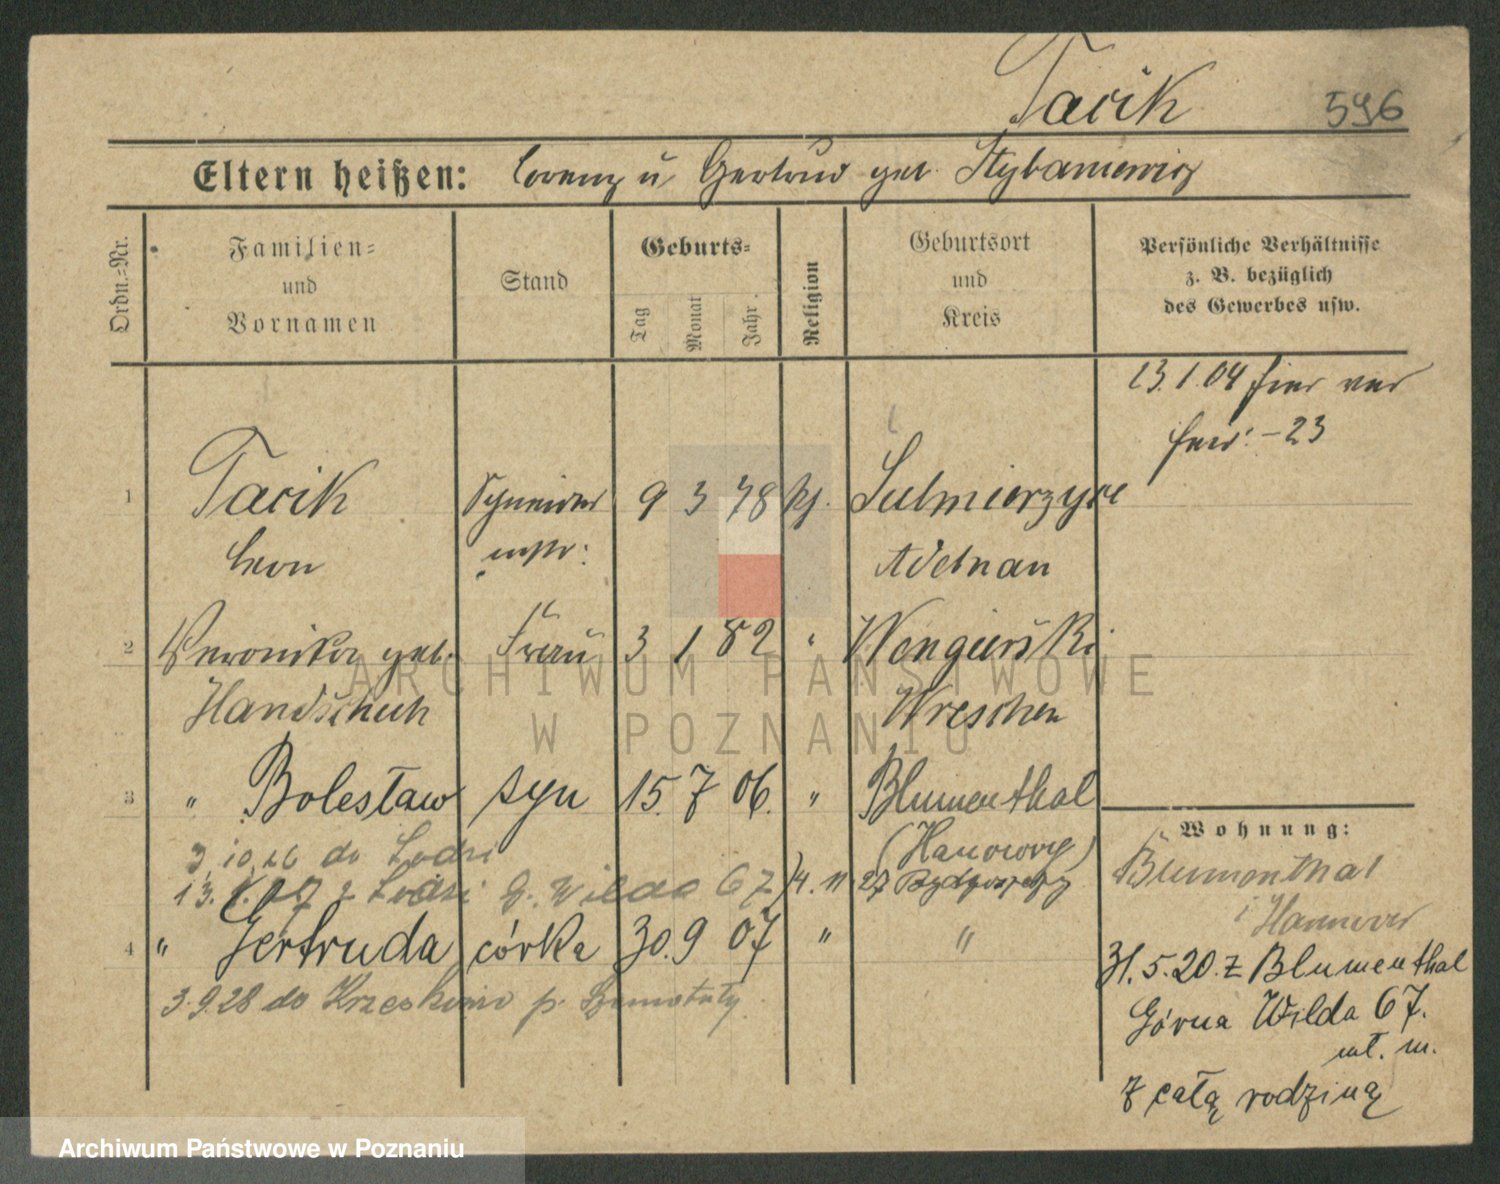 Tacik 596
Eltern heißen: Lorenz u Gertrud geb. Stybaniewicz
Ordn.-Nr.
Familien- und Vornamen
Stand
Geburts-
Tag Monat Jahr
Religion
Geburtsort und Kreis
Persönliche Verhältnisse z. B. bezüglich des Gewerbes usw.
13.1.04 hier
-23
1 Tacik Schneider 9 3 78 kf. Sulmierzyce
Leon mstr: Adelnau
2 Veronika geb. Frau 3 1 82 " Wengierski
Handschuh Wreschen
3 " Bolesław syn 15. 7 06. " Blumenthal
(Hanower)
3.10.26 do Łodzi
13. z Łodzi G. Wilda 67 14. 11 27 Bydgoszczy
4 " Gertruda córka 30. 9 07 " "
3.9.28 do p. Szamotuły
Wohnung:
Blumenthal
i Hannover
31.5.20. z Blumenthal
Górna Wilda 67.
wł. m.
z całą rodziną
ARCHIWUM PAŃSTWOWE
W POZNANIU
Archiwum Państwowe w Poznaniu